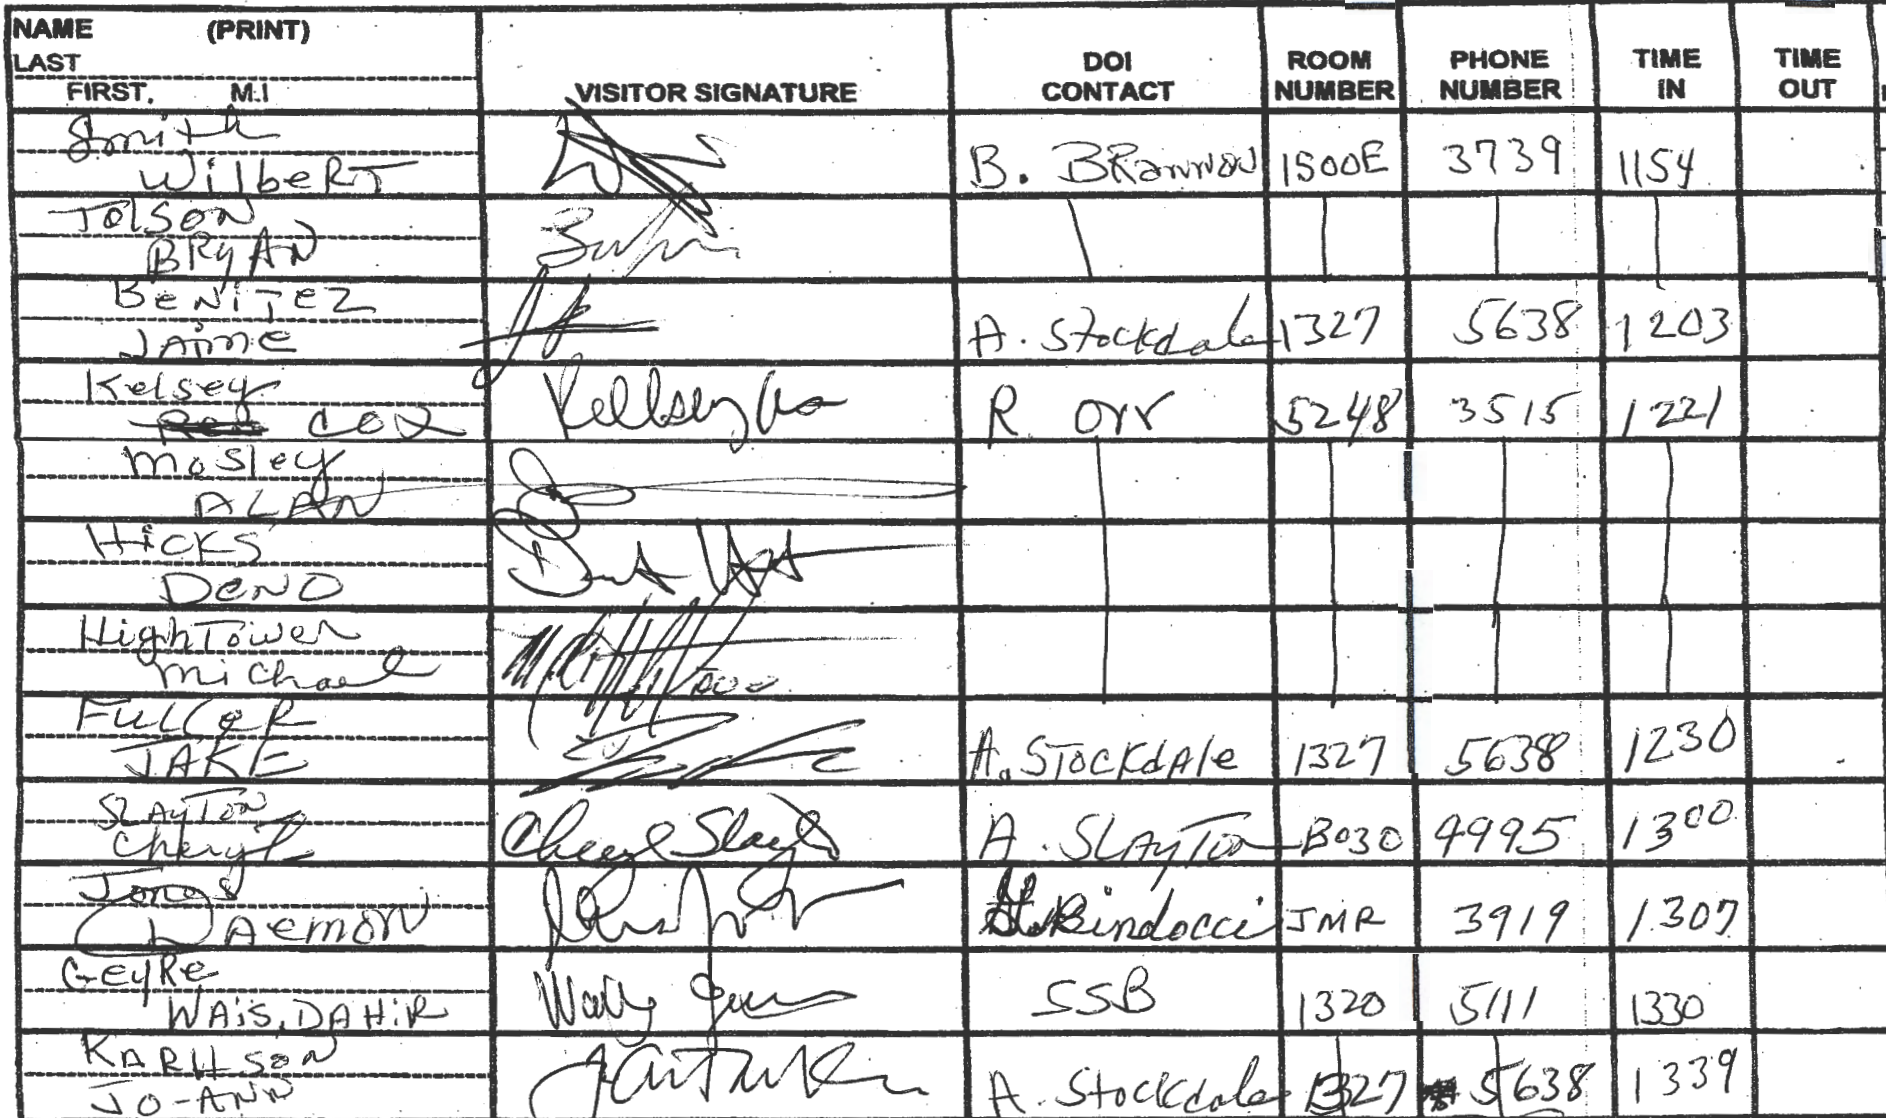 NAME (PRINT)
LAST
FIRST, M.I
VISITOR SIGNATURE
DOI CONTACT
ROOM NUMBER
PHONE NUMBER
TIME IN
TIME OUT
Smith
WilbeRT B. BRannon 1500E 3739 1154
TOLSON
BRYAN
BENiTEZ
JAime A. Stockdale 1327 5638 1203
Kelsey
COX Kellsey Cox R Orr 5248 3515 1221
Mosley
ALAN
HICKS
DENO
HighTower
Michael
FULLER
JAKE A. STOCKdAle 1327 5638 1230
SLAYTON
Cheryl Cheryl Slayton A. SLAYTON B030 4995 1300
Jones
DAEMON Bindocci JMR 3919 1307
GEYRE
WAIS, DAHIR SSB 1320 5111 1330
KARHSON
JO-ANN A. Stockdale 1327 5638 1339